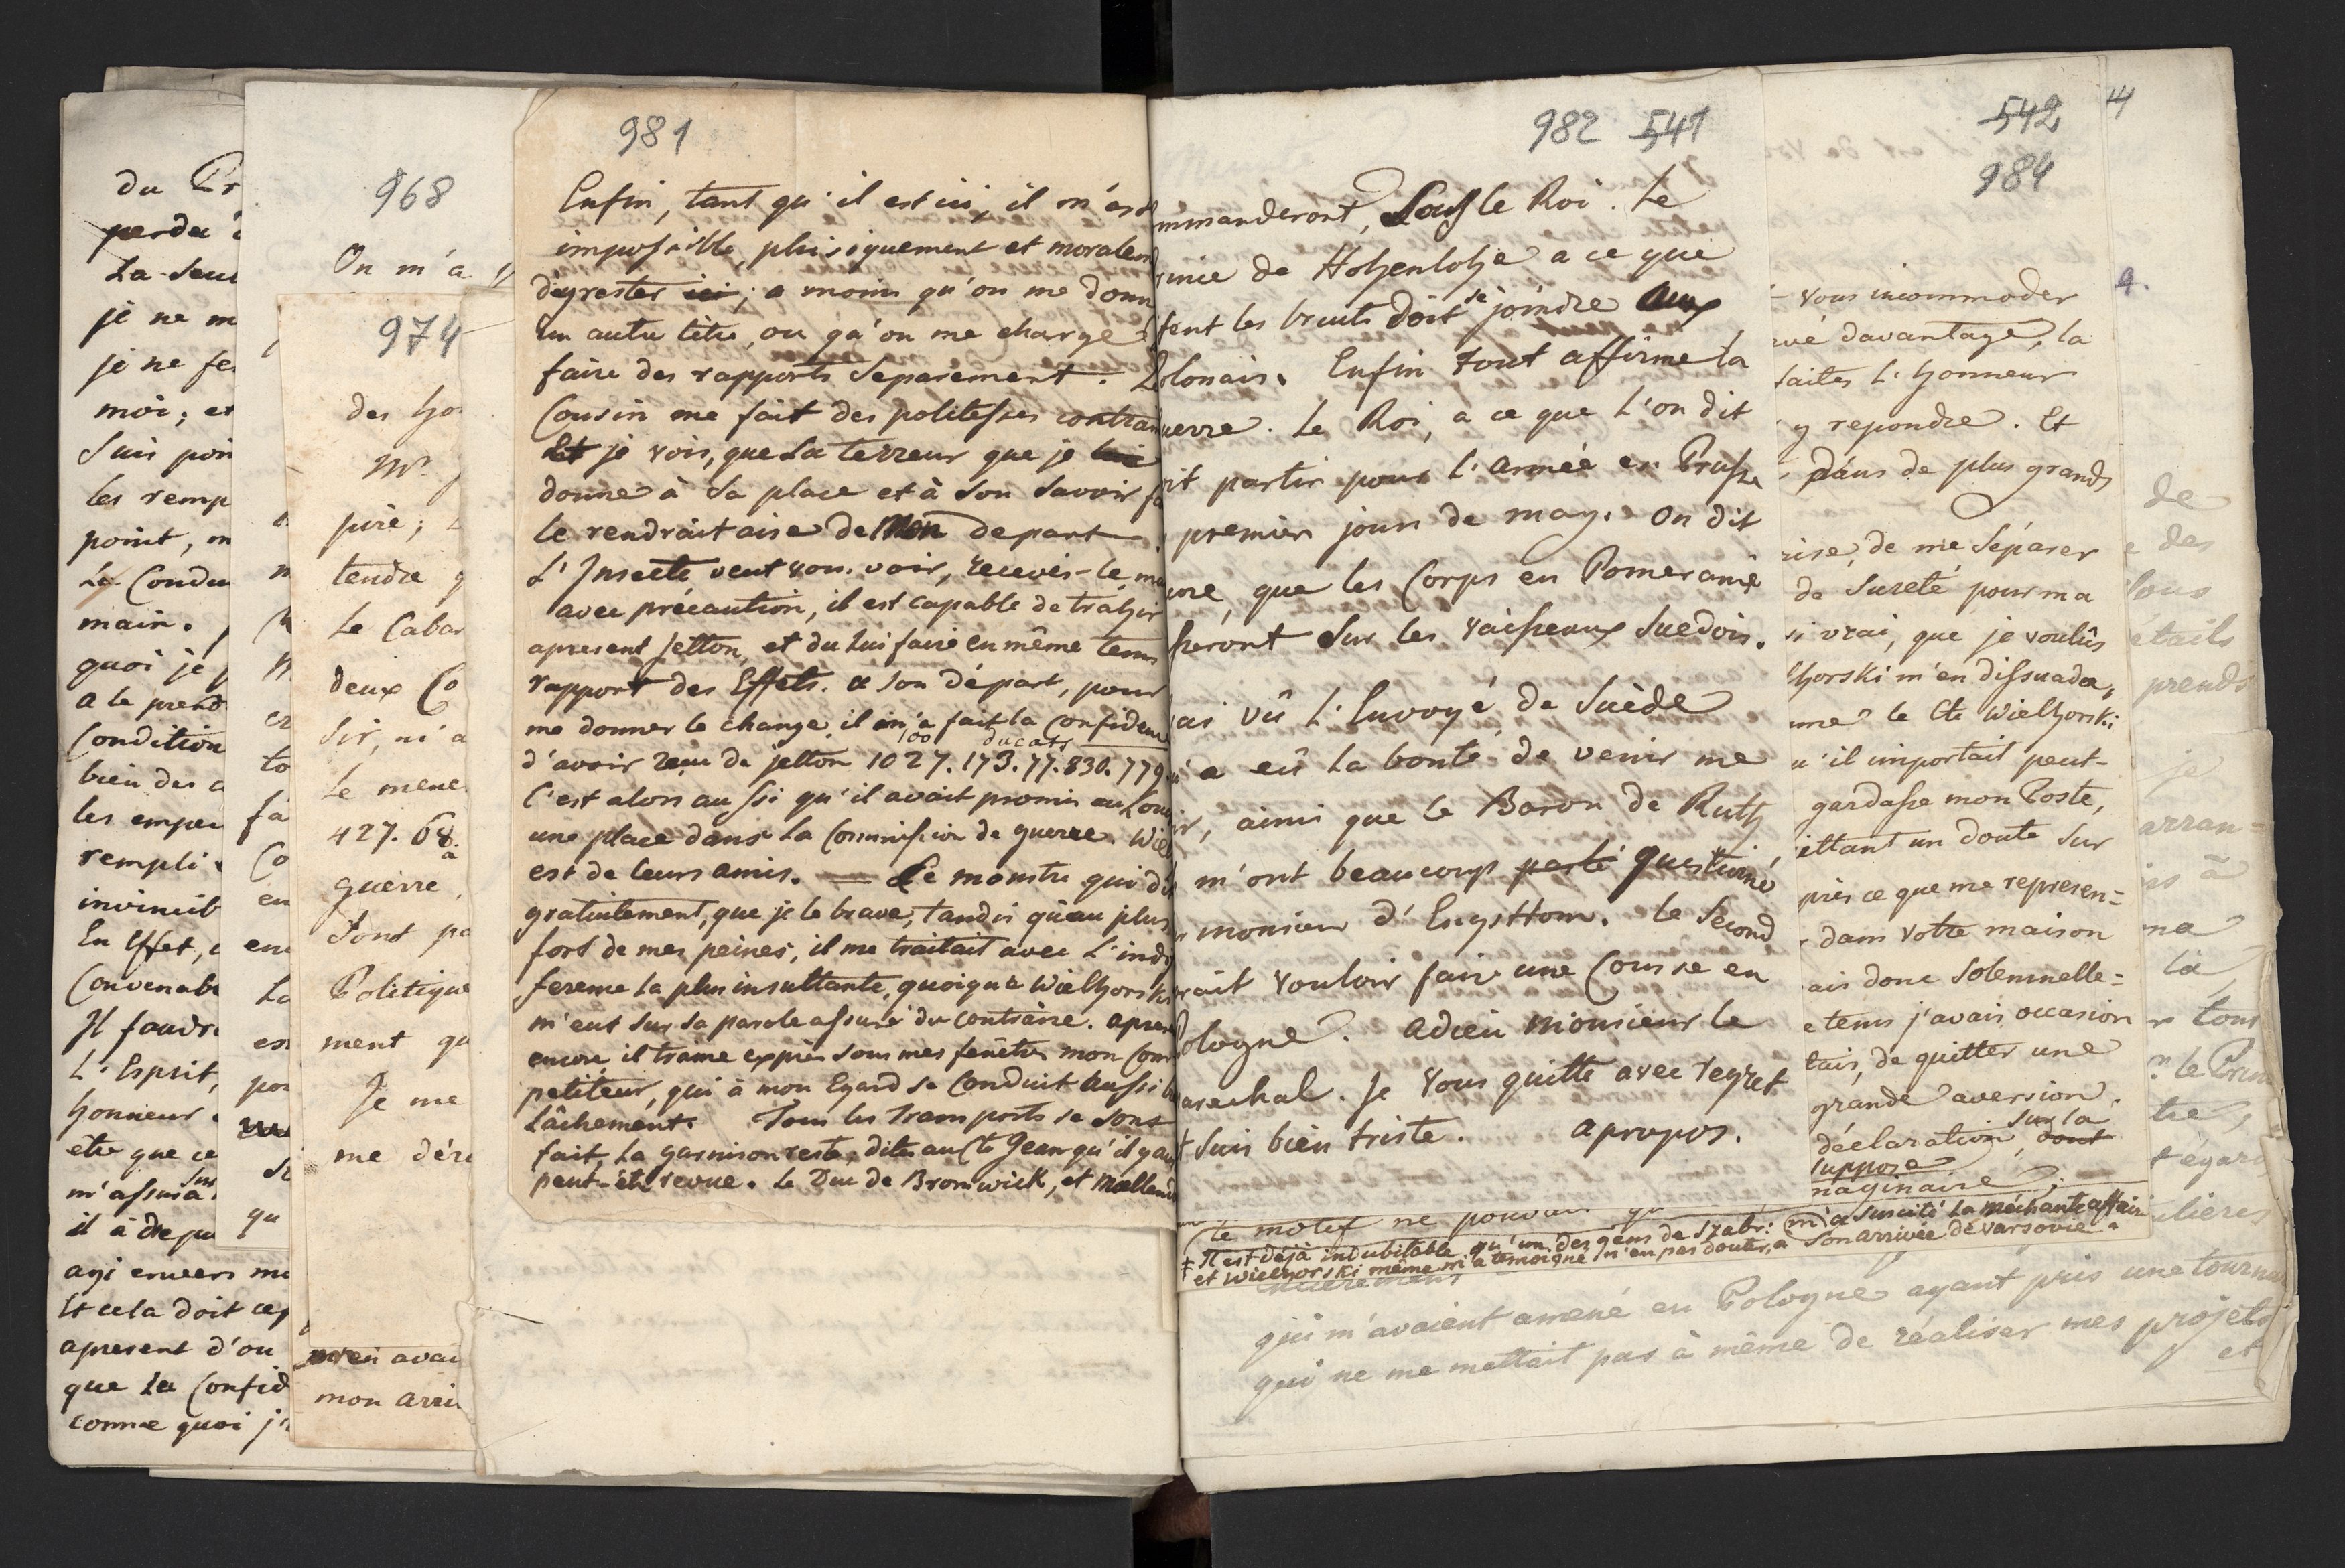 du Pr
perdu
La Seu
je ne m
je ne fe
moi; et
Suis poin
les remp
point, m
La Condu
main.
quoi je
a le prend
Condition
bien des
les empe
rempli
invincib
En Effet,
Convenab
Il faudr
L'Esprit,
honneur
etre que ce
sur
m'assura
il à
agi envers m
Et cela doit cep
apresent d'ou
que la Confid
comme quoi j'
968
On m'a
fa
Co
en
La
es
po
qu
974
des ho
Mr.
pire;
tendre
Le Cabar
deux Co
Sir, m'a
Le mene
427. 68.
a
guerre,
font pa
Politique
ment qu
Je me
me dére
avai
mon arri
981
Enfin, tant qu'il est ici, il m'est
impossible, phisiquement et moralem
d'y rester ici; a moins qu'on me donn
un autre titre, ou qu'on me charge
faire des rapports Separement.
Cousin me fait des politesses contrain
Et je vois, que la terreur que je lui
donne à Sa place et à Son Savoir fa
le rendrait aise de Mon depart
L'Insecte veut vous voir, recevés-le, ma
avec précaution, il est capable de trahir
apresent Jetton, et du lui faire en même tems
rapport des Effets. a Son départ, pour
me donner le change, il m'a fait la Confidence
100 ducats
d'avoir reçu de jetton 1027. 173. 77. 830. 779.
C'est alors aussi qu'il avait promis au
une place dans la Commission de guerre. Wiel
est de leurs amis. — Le monstre qui di
gratuitement, que je le brave, tandis qu'au plus
fort de mes peines, il me traitait avec L'indi
ference la plus insultante, quoique Wielhorski
m'eut sur sa parole assuré du contraire. apres
encore, il traine exprès sous mes fenêtres mon Com
petiteur, qui à mon Egard se Conduit aussi
lâchement. Tous les Transports se sont
fait la garnison reste, dites au Cte Jean qu'il y au
peut-être revue. Le Duc de Bronswick, et Mœllend
982 541
mmanderont, Sous le Roi. Le
rince de Hohenlohe a ce que
sent les bruits doit se joindre aux
Polonais. Enfin tout affirme la
uerre. Le Roi, a ce que l'on dit
oit partir pour l'armée en Prusse
premiers jours de may. On dit
ore, que les Corps en Pomeranie
seront Sur les vaisseaux Suedois.
ai vû l'Envoyé de Suède
m'a eû la bonté de venir me
ir, ainsi que le Baron de Ruth
m'ont beaucoup parlé questioné
monsieur d'Engsttom. Le Second
rait vouloir faire une Course en
Pologne. Adieu Monsieur le
arechal. Je vous quitte avec regret
t Suis bien triste. apropos.
542
984
vous incommoder
vé davantage, la
faites l'honneur
y repondre. Et
dans de plus grands
rise, de me Séparer
de Sureté pour ma
si vrai, que je voulûs
lhorski m'en dissuada,
me le Cte Wielhorski
u'il importait peut-
gardasse mon Poste,
ettant un doute Sur
près ce que me represen-
dans votre maison
ais donc Solemnelle-
e tems j'avais occasion
tais, de quitter une
grande aversion.
sur la
déclaration, dont
suppose
maginaire.
le motif ne pouvai
‡ Il est déjà indubitable qu'un des gens de Szabr: m'a suscité la méchante affaire
et Wielhorski même m'a temoigné n'en pas douter, a Son arrivée de Varsovie.
4
de
e des
lous
etails
prends
je
arran=
is à
ma
là,
r tous
le Prin
tre,
t'égar
ulieres
qui m'avaient amené en Pologne ayant pris une tournu
qui ne me mettait pas à même de réaliser mes projets
et